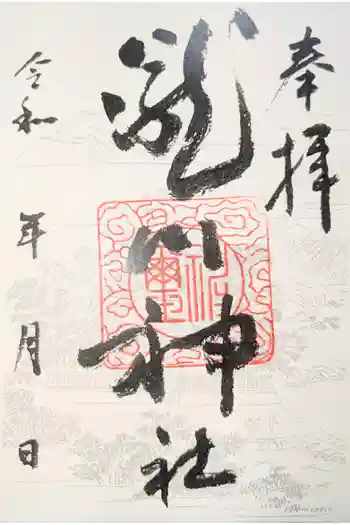 奉拝
瀧川神社
令和 年 月 日